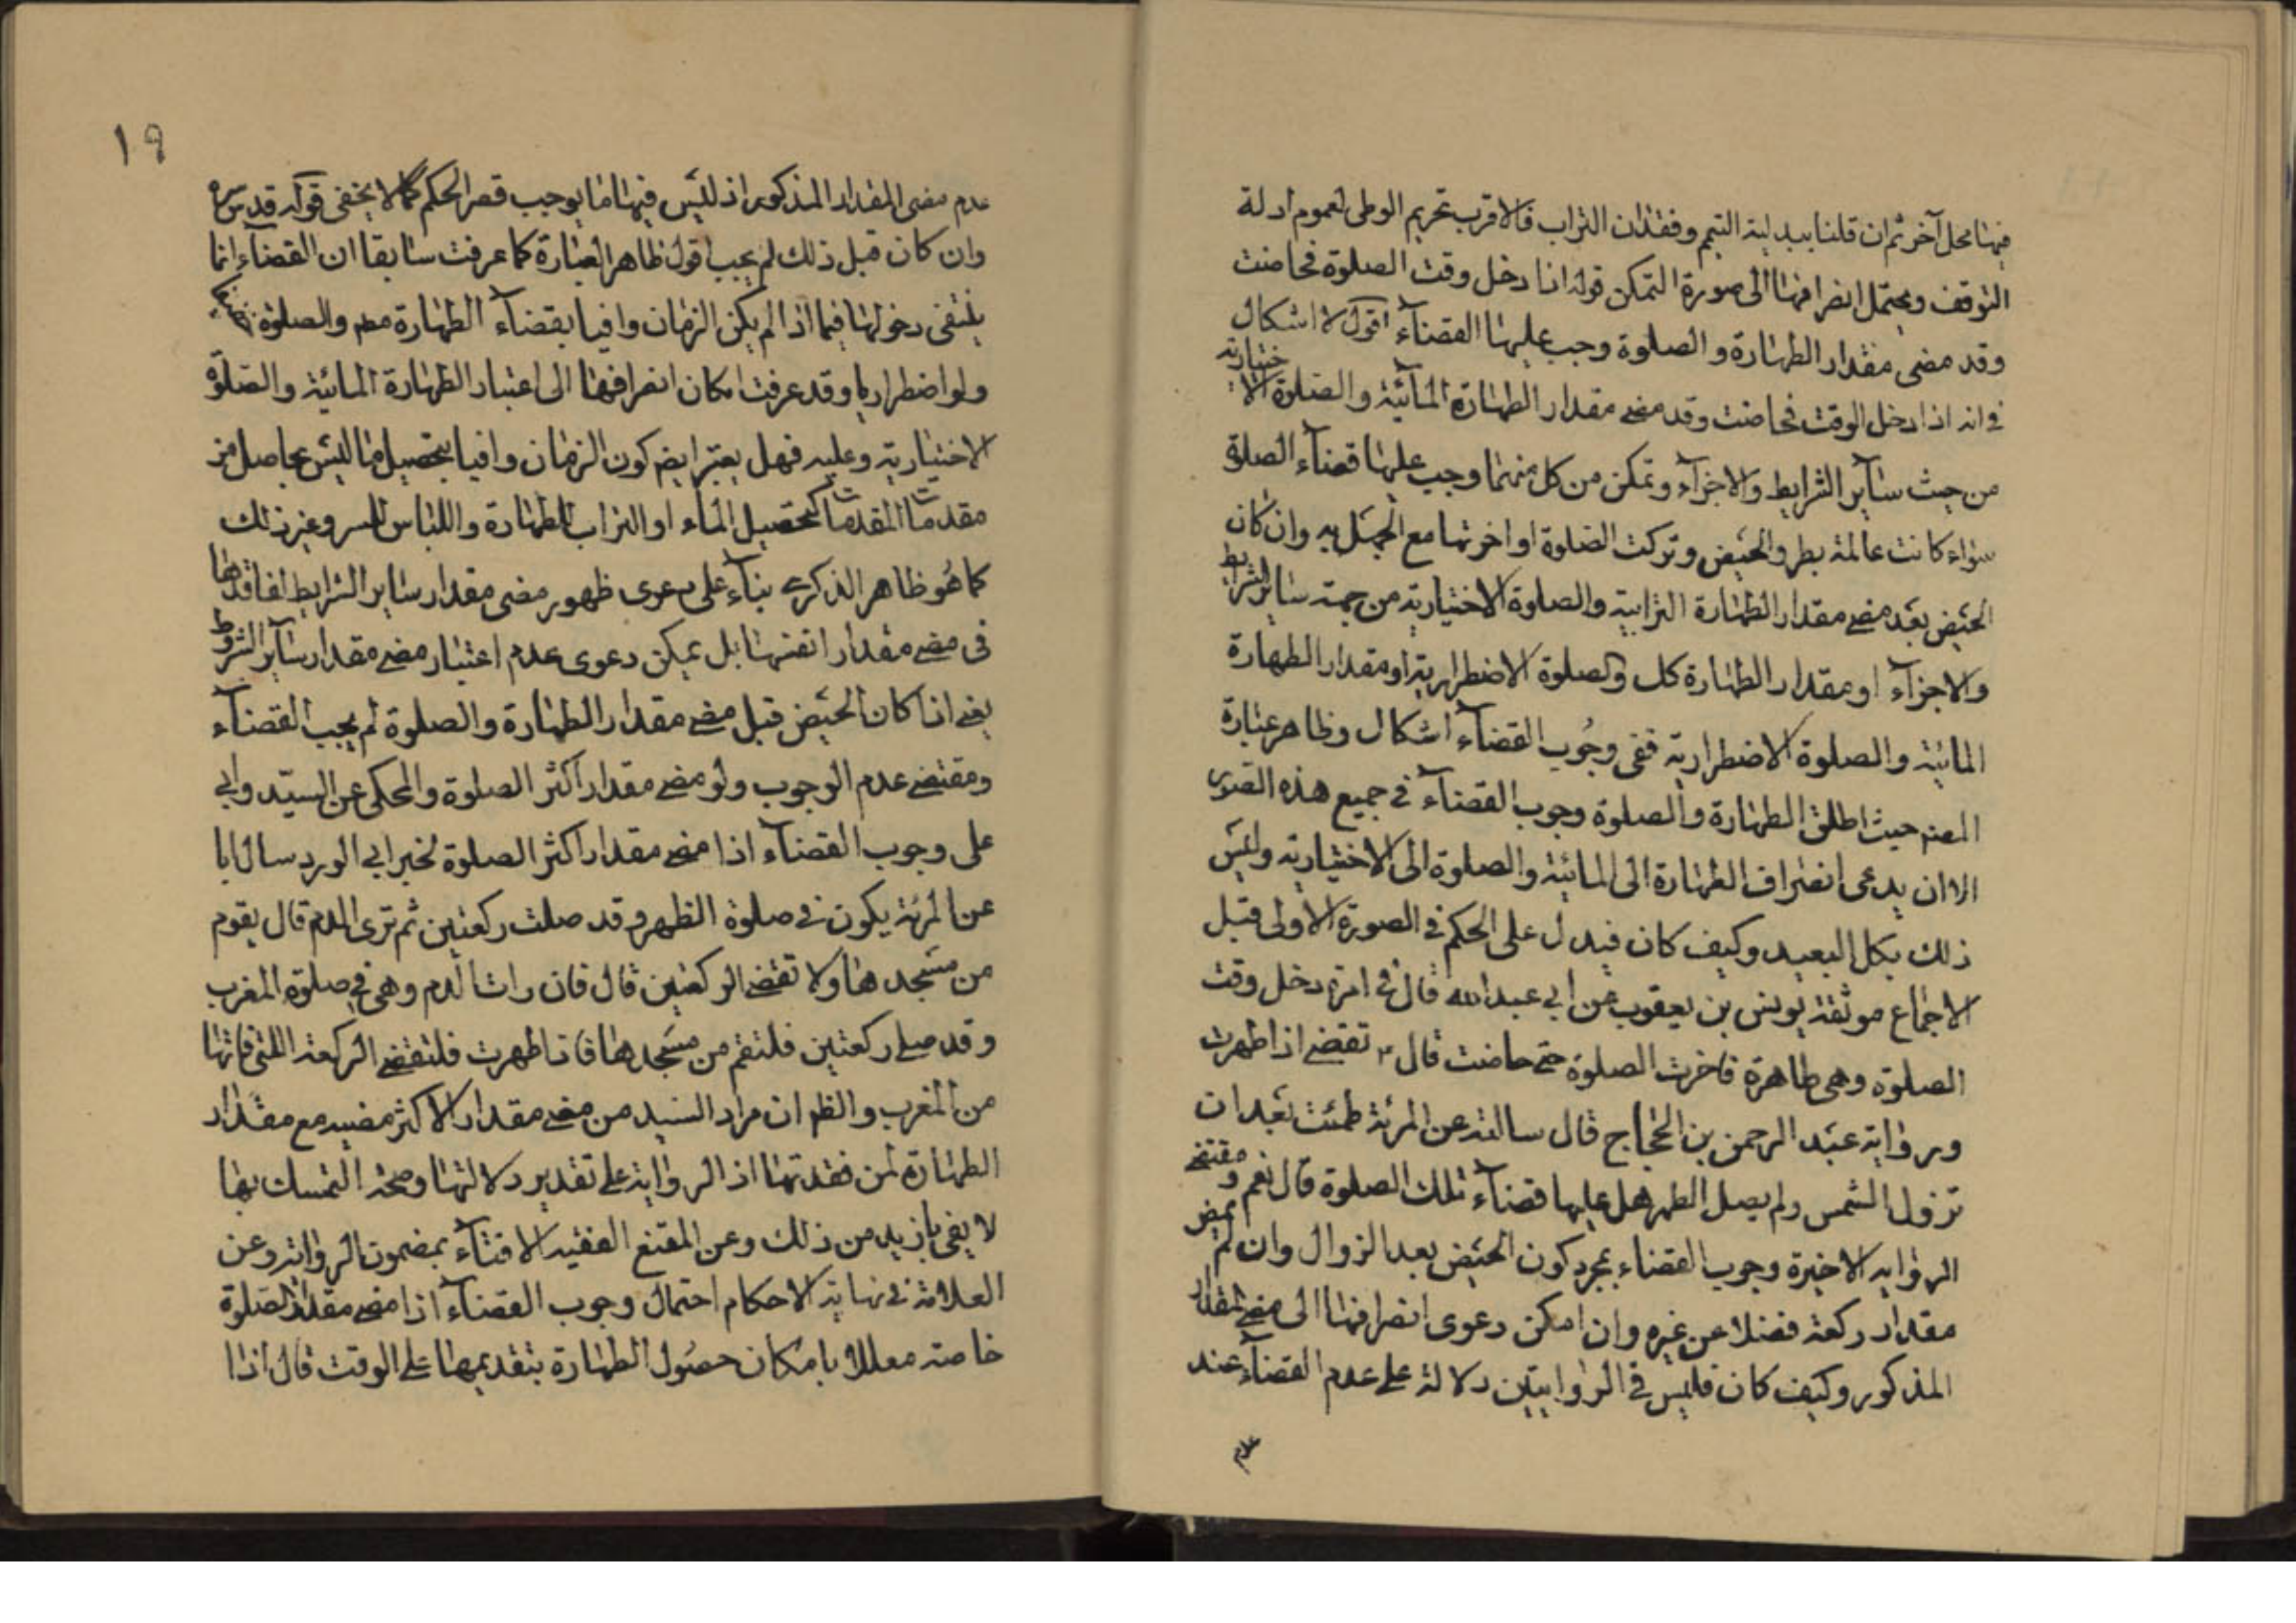 فيها محل آخر ثم ان قلنا ببدلية التيمم وفقدان التراب فالاقرب تحريم الوطى لعموم ادلة
التوقف ويحتمل انصرافها الى صورة التمكن قوله اذا دخل وقت الصلوة فحاضت
وقد مضى مقدار الطهارة و الصلوة وجب عليها القضآء اقول لا اشكال
فى انه اذا دخل الوقت فحاضت وقد مضى مقدار الطهارة المائية والصلوة الاختيارية
من حيث سآير الشرايط والاجزآء وتمكن من كل منهما وجب عليها قضآء الصلوة
سواء كانت عالمة بطرو الحيض وتركت الصلوة او اخرتها مع الجهل به وان كان
الحيض بعد مضى مقدار الطهارة الترابية والصلوة الاختيارية من جهة ساير الشرايط
والاجزآء او مقدار الطهارة كك والصلوة الاضطرارية او مقدار الطهارة
المائية والصلوة الاضطرارية ففى وجوب القضآء اشكال وظاهر عبارة
المصنم حيث اطلق الطهارة والصلوة وجوب القضآء فى جميع هذه الصور
الا ان يدعى انصراف الطهارة الى المائية والصلوة الى الاختيارية وليس
ذلك بكل البعيد وكيف كان فيدل على الحكم فى الصورة الاولى قبل
الاجماع موثقة يونس بن يعقوب عن ابى عبدالله قال فى امرئة دخل وقت
الصلوة وهى طاهرة فاخرت الصلوة حتى حاضت قال تقضى اذا طهرت
ورواية عبد الرحمن بن الحجاج قال سالته عن المرئة طمثت بعد ان
تزول الشمس ولم يصل الظهر هل عليها قضآء تلك الصلوة قال نعم ومقتضى
الرواية الاخيرة وجوب القضاء بمجرد كون الحيض بعد الزوال وان لم يمض
مقدار ركعة فضلا عن غيره وان امكن دعوى انصرافها الى مضى المقدار
المذكور وكيف كان فليس فى الروايتين دلالة على عدم القضآء عند
عدم
١٩
عدم مضى المقدار المذكور اذ ليس فيهما ما يوجب قصر الحكم كما لا يخفى قوله قدس سره
وان كان قبل ذلك لم يجب اقول ظاهر العبارة كما عرفت سابقا ان القضآء انما
ينتفى دخولها فيما اذا لم يكن الزمان وافيا بقضآء الطهارة مطم والصلوة
ولو اضطراريا وقد عرفت امكان انصرافها الى اعتبار الطهارة المائية والصلوة
الاختيارية وعليه فهل يعتبر ايضم كون الزمان وافيا بتحصيل ما ليس بحاصل من
مقدمات المقدمات كتحصيل الماء او التراب للطهارة واللباس للستر وغير ذلك
كما هو ظاهر الذكرى بناء على دعوى ظهور مضى مقدار ساير الشرايط لفاقدها
فى مضى مقدار انفسها بل يمكن دعوى عدم اعتبار مضى مقدار ساير الشروط
يعنى اذا كان الحيض قبل مضى مقدار الطهارة والصلوة لم يجب القضآء
ومقتضى عدم الوجوب ولو مضى مقدار اكثر الصلوة والمحكى عن السيد وابى
على وجوب القضآء اذا مضى مقدار اكثر الصلوة لخبر ابى الورد سال ابا
عن المرئة يكون فى صلوة الظهر وقد صلت ركعتين ثم ترى الدم قال يقوم
من مسجدها ولا تقضى الركعتين قال فان رات الدم وهى فى صلوة المغرب
وقد صلى ركعتين فلتقم من مسجدها فاذا طهرت فلتقضى الركعة اللتى فاتها
من المغرب والظم ان مراد السيد من مضى مقدار الاكثر مضيه مع مقدار
الطهارة لمن فقدتها اذ الرواية على تقدير دلالتها وصحة التمسك بها
لا يفى بازيد من ذلك وعن المقنع الفقيه الافتآء بمضمون الرواية وعن
العلامة فى نهاية الاحكام احتمال وجوب القضآء اذا مضى مقدار الصلوة
خاصة معللا بامكان حصول الطهارة بتقديمها على الوقت قال اذا